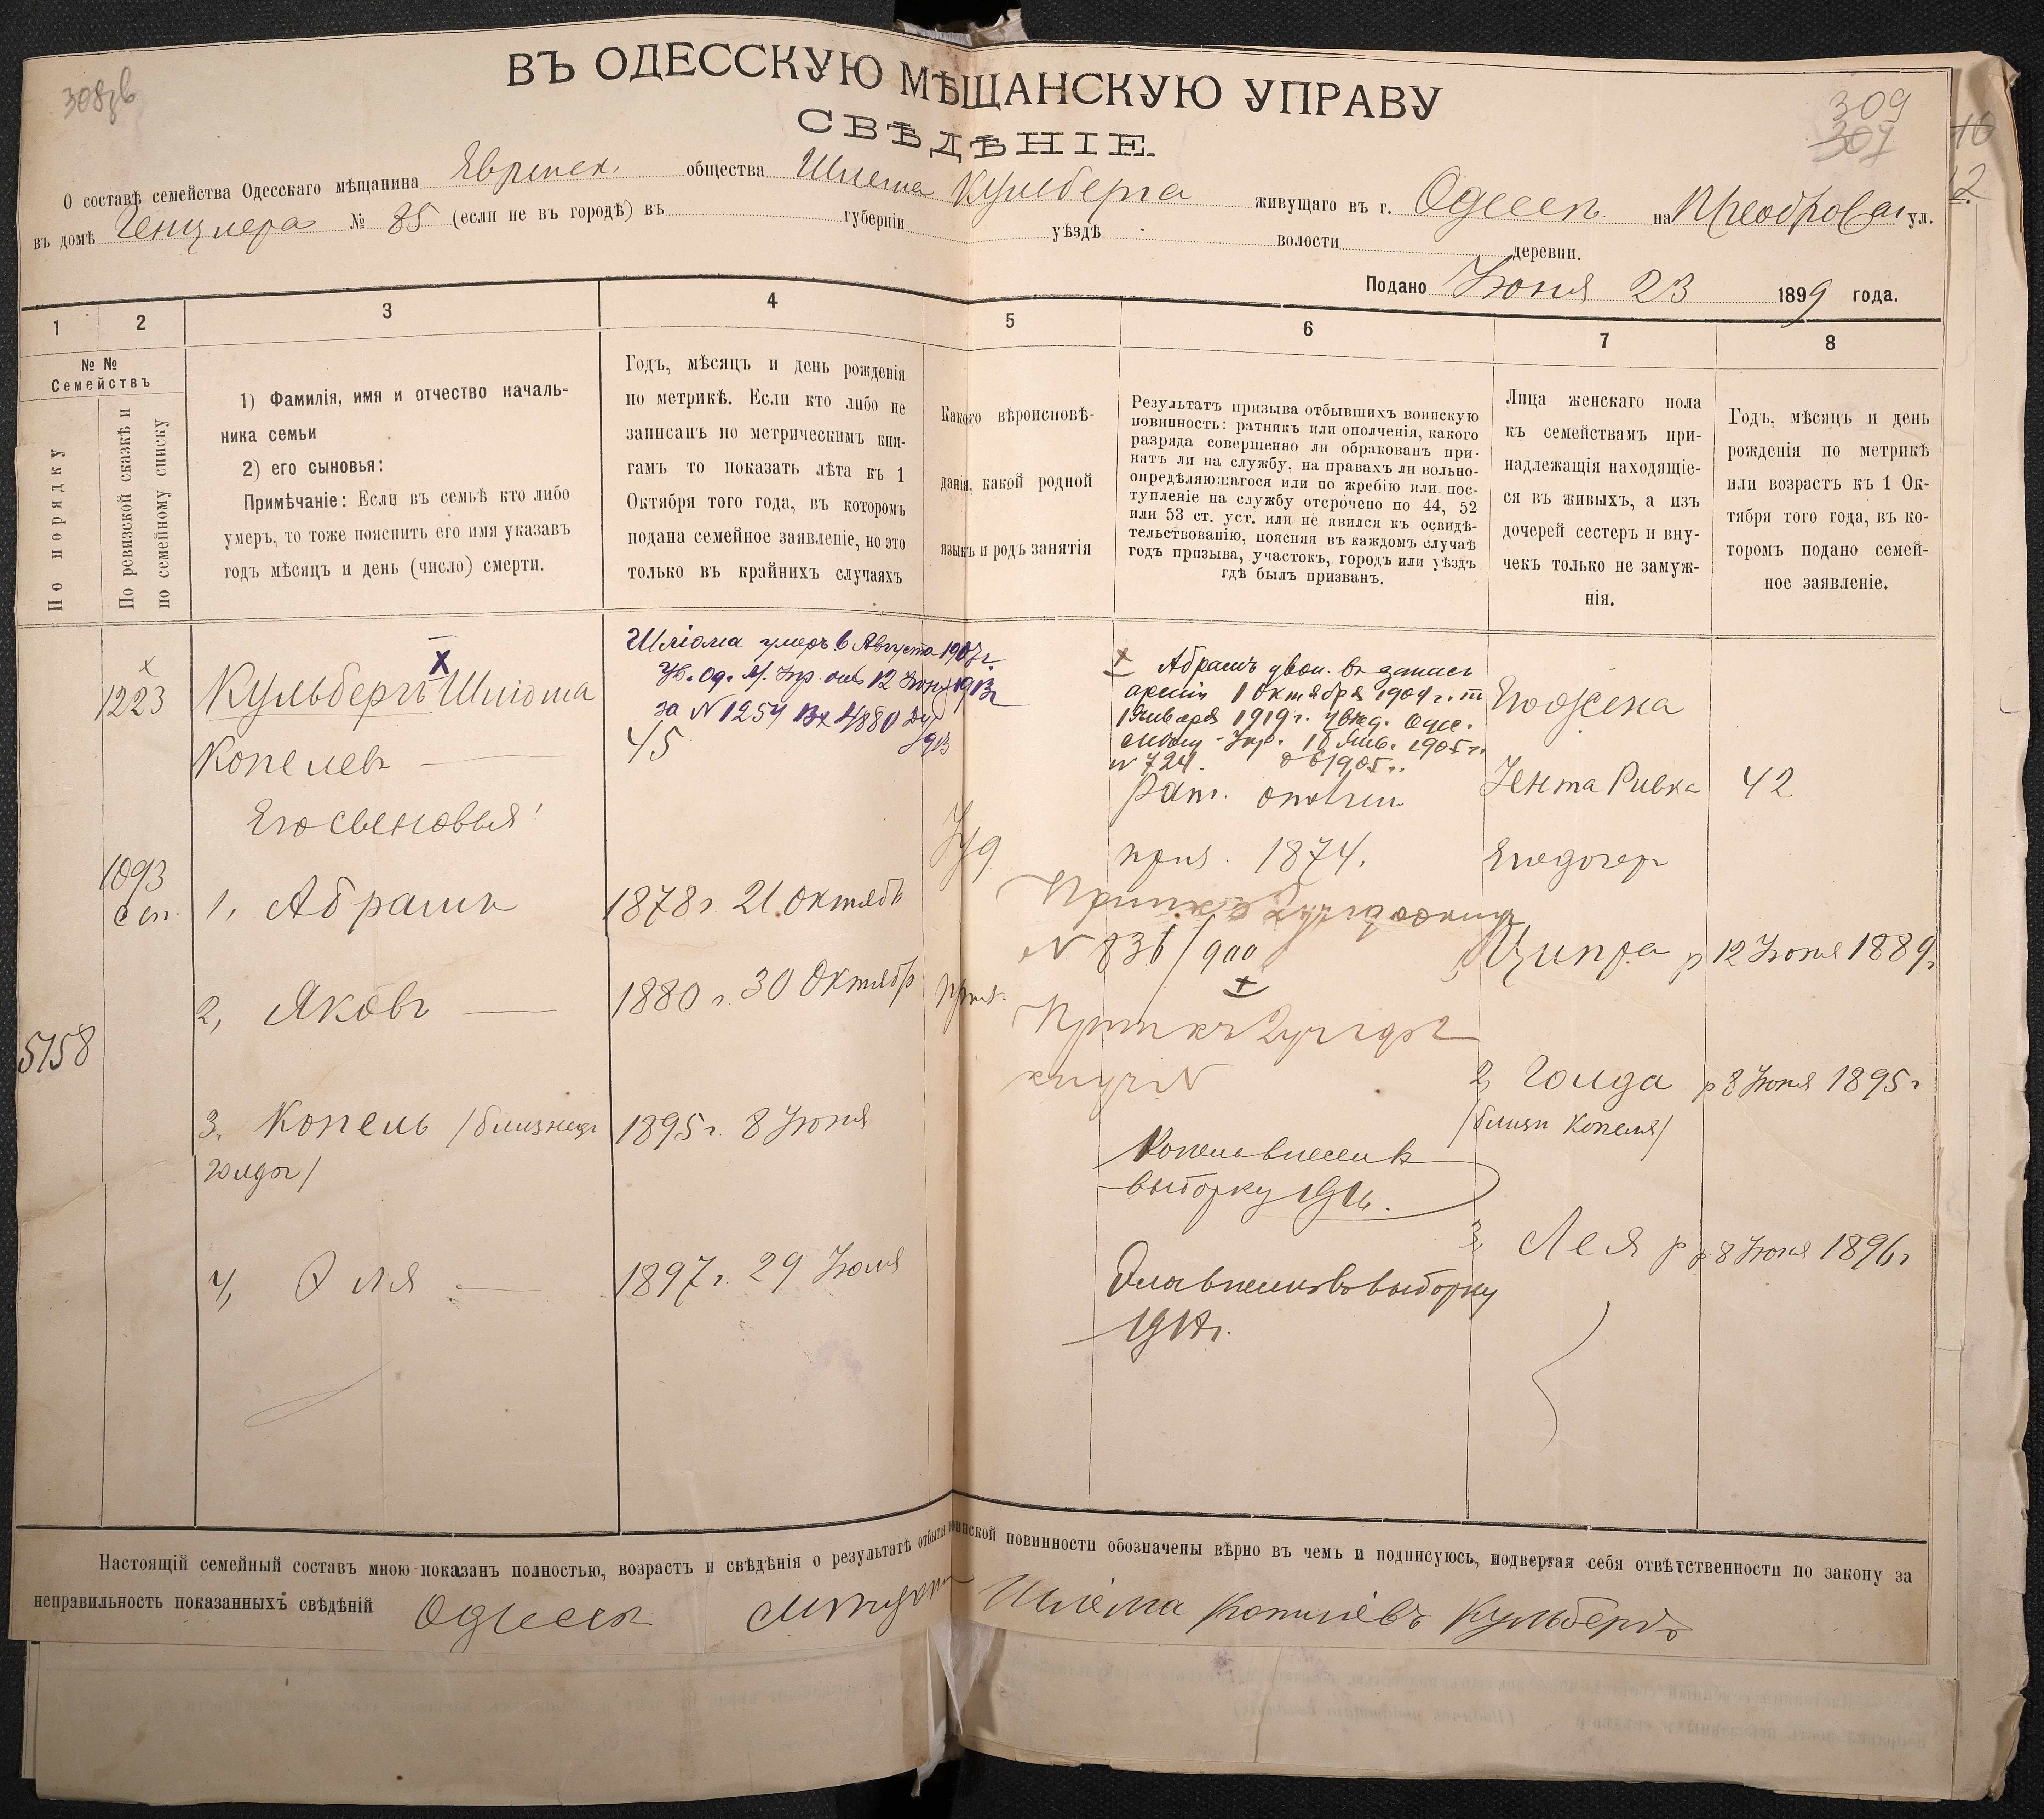 309
307
ВЪ ОДЕССКУЮ МѢЩАНСКУЮ УПРАВУ
СВѢДѢНІЕ.
О составѣ семейства Одесскаго мѣщанина Еврейск. общества Шлема Кульберга живущаго въ г. Одессѣ на Преображ ул.
въ домѣ Генцлера № 85 (если не въ городѣ) въ губерніи уѣздѣ волости деревни.
Подано Іюня 23 1899 года.
1 2 3 4 5 6 7 8
№ №
Семействъ
По порядку
По ревизской сказкѣ и
по семейному списку
1) Фамилія, имя и отчество началь-
ника семьи
2) его сыновья:
Примѣчаніе: Если въ семьѣ кто либо
умеръ, то тоже пояснить его имя указавъ
годъ мѣсяцъ и день (число) смерти.
Годъ, мѣсяцъ и день рожденія
по метрикѣ. Если кто либо не
записанъ по метрическимъ кни-
гамъ то показать лѣта къ 1
Октября того года, въ которомъ
подана семейное заявленіе, но это
только въ крайнихъ случаяхъ
Какого вѣроисповѣ-
данія, какой родной
языкъ и родъ занятія
Результатъ призыва отбывшихъ воинскую
повинность: ратникъ или ополченія, какого
разряда совершенно ли обракованъ при-
нятъ ли на службу, на правахъ ли вольно-
опредѣляющагося или по жребію или пос-
тупленіе на службу отсрочено по 44, 52
или 53 ст. уст. или не явился къ освидѣ-
тельствованію, поясняя въ каждомъ случаѣ
годъ призыва, участокъ, городъ или уѣздъ
гдѣ былъ призванъ.
Лица женскаго пола
къ семействамъ при-
надлежащія находящіе-
ся въ живыхъ, а изъ
дочерей сестеръ и вну-
чекъ только не замуж-
нія.
Годъ, мѣсяцъ и день
рожденія по метрикѣ
или возрастъ къ 1 Ок-
тября того года, въ ко-
торомъ подано семей-
ное заявленіе.
х
1223
X
Кульбергъ Шліома
Копелев
Его сыновья:
Шліома умеръ 6 Августа 1907 г.
Ув. Од. М. Упр. отъ 12 Іюня 1913 г
за N 1254 Вх 4880
1913
45
Абрамъ увол. въ запасъ
арміи 1 Октября 1904 г. по
1 Января 1919 г. увед. Одес.
Упр. 18 Янв. 1905 г.
N 724. 1905 г.
Рат. ополчен
приз. 1874.
Его жена
Гента Ривка 42
Его дочер
1093
1, Абрамъ 1878 г. 21 Октябр
Іуд
N 836/900
Ципра р 12 Іюня 1889 г
2, Яковъ 1880 г. 30 Октябр
5158
2, Голда р 8 Іюня 1895 г
/близн Копеля/
3. Копель /близнец 1895 г. 8 Іюня
Голды/
Копель внесен в
выборку 1916.
3, Лея р 8 Іюня 1896 г
4, Эля 1897 г. 29 Іюля
Эля внесенъ въ выборку
Настоящій семейный составъ мною показанъ полностью, возрастъ и свѣдѣнія о результатѣ отбытія воинской повинности обозначены вѣрно въ чемъ и подписуюсь, подвергая себя отвѣтственности по закону за
неправильность показанныхъ свѣдѣній Одесск Шліома Копилевъ Кульбергъ